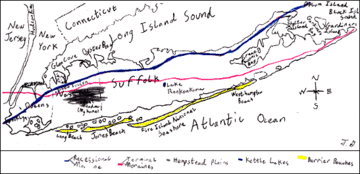 Connecticut
New Jersey
New York
Long Island Sound
Plum Island
Block Island
Gardiners Island
Glen Cove
Oyster Bay
Suffolk
Queens
Lake Ronkonkoma
Westhampton Beach
Fire Island National Seashore
Jones Beach
Long Beach
Atlantic Ocean
N
W E
S
J.D
Recessional Moraine
Terminal Moraines
Hempstead Plains
Kettle Lakes
Barrier Beaches